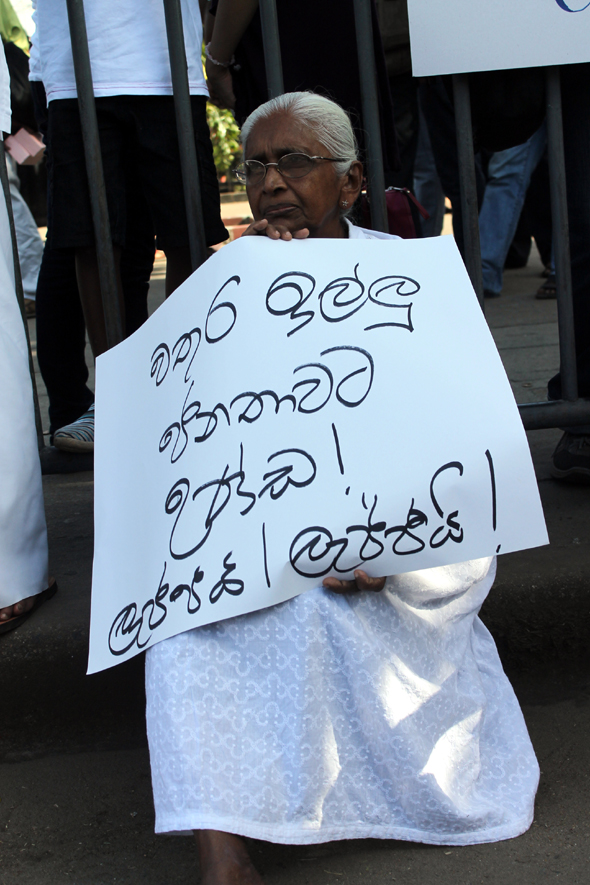 වතුර ඉල්ලූ
ජනතාවට
උණ්ඩ!
ලැජ්ජයි! ලැජ්ජයි!